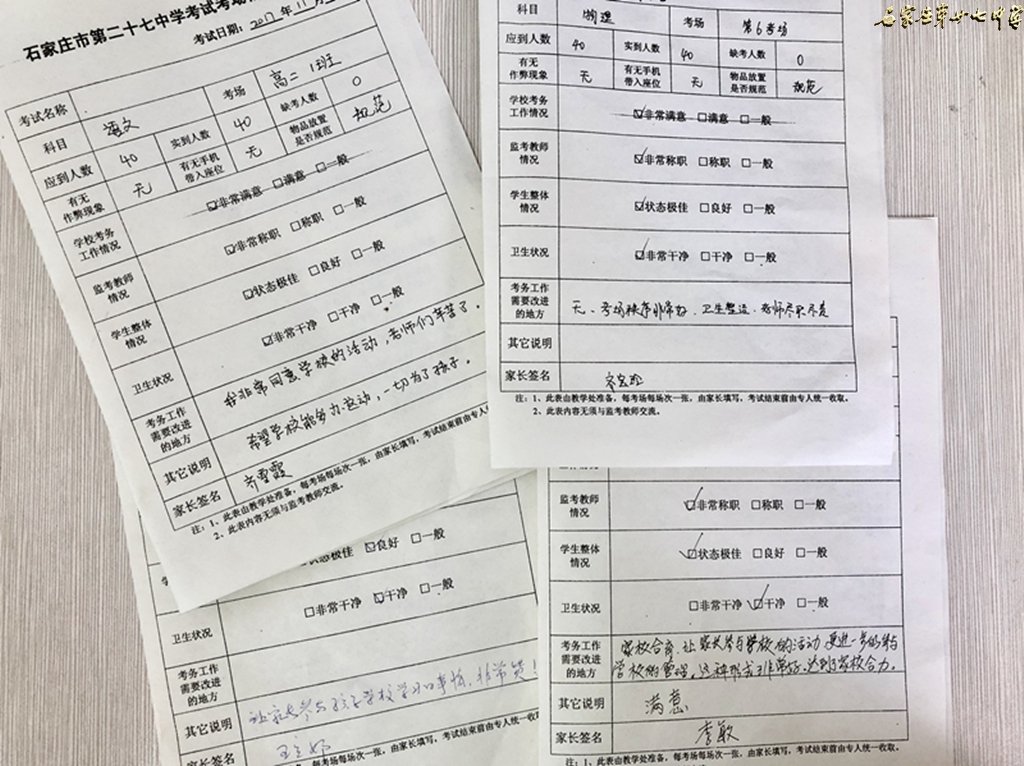 石家庄市第二十七中学考试考场
考试日期：2017年11月
考试名称 考场 高二 1班
科目 语文 实到人数 40 缺考人数 0
应到人数 40 有无手机带入座位 无 物品放置是否规范 规范
有无作弊现象 无
学校考务工作情况 ☑非常满意 □满意 □一般
监考教师情况 ☑非常称职 □称职 □一般
学生整体情况 ☑状态极佳 □良好 □一般
卫生状况 ☑非常干净 □干净 □一般
考务工作需要改进的地方 我非常同意学校的活动，老师们辛苦了。
其它说明 希望学校能多办活动，一切为了孩子。
家长签名
注：1、此表由教学处准备，每考场每场次一张，由家长填写，考试结束前由专人统一
2、此表内容无须与监考教师交流。
石家庄第廿七中学
科目 物理 考场 第6考场
应到人数 40 实到人数 40 缺考人数 0
有无作弊现象 无 有无手机带入座位 无 物品放置是否规范 规范
学校考务工作情况 ☑非常满意 □满意 □一般
监考教师情况 ☑非常称职 □称职 □一般
学生整体情况 ☑状态极佳 □良好 □一般
卫生状况 ☑非常干净 □干净 □一般
考务工作需要改进的地方 无、考场秩序非常好、卫生整洁、老师尽职尽责
其它说明
家长签名
注：1、此表由教学处准备，每考场每场次一张，由家长填写，考试结束前由专人统一收取。
2、此表内容无须与监考教师交流。
状态极佳 ☑良好 □一般
卫生状况 □非常干净 ☑干净 □一般
考务工作需要改进的地方
其它说明 让家长参与孩子学校学习的事情，非常赞！
家长签名
注：1、此表由教学处准备，每考场每场次一张，由家长填写，考试结束前由专人统一收
监考教师情况 ☑非常称职 □称职 □一般
学生整体情况 ☑状态极佳 □良好 □一般
卫生状况 □非常干净 ☑干净 □一般
考务工作需要改进的地方 家校合育，让家长参与学校的活动，更进一步的参与
学校的管理，这种形式非常好，达到了家校合力。
其它说明 满意
家长签名 李敏
注：1、此表由教学处准备，每考场每场次一张，由家长填写，考试结束前由专人统一收取。